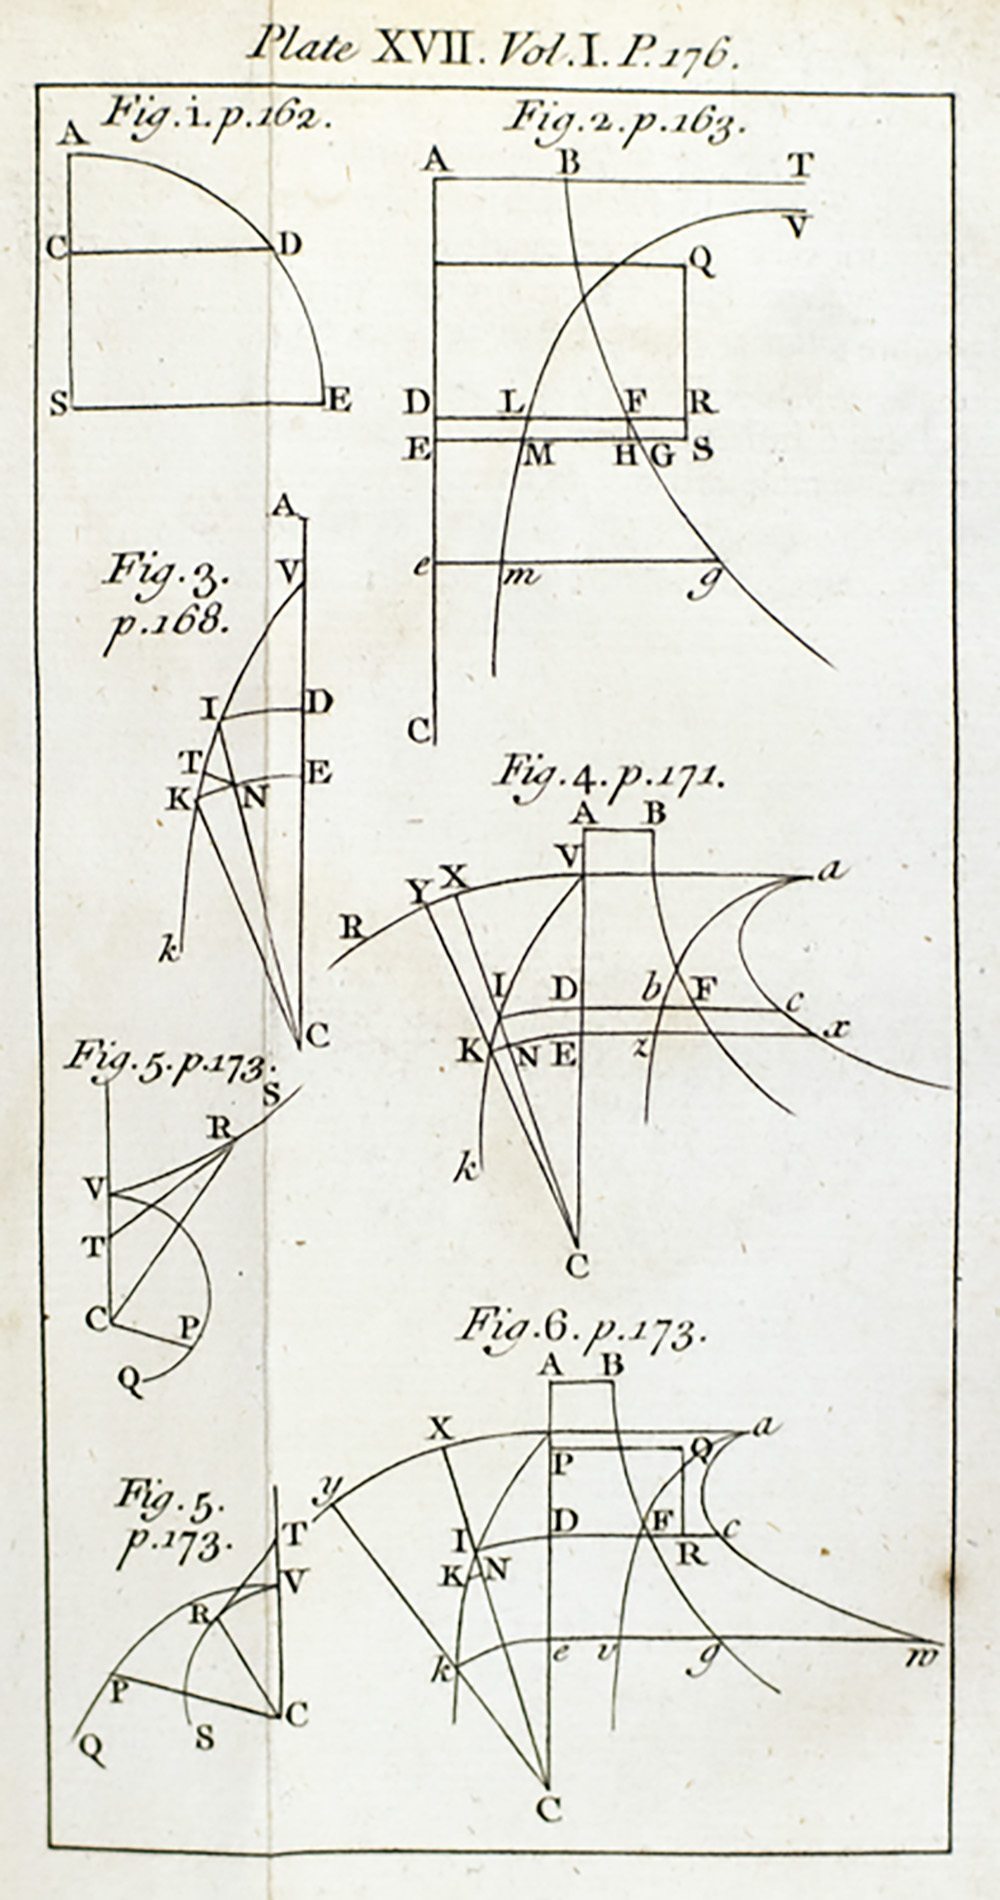 Plate XVII. Vol.I. P.176.
Fig.1.p.162.
A
C D
S E
Fig.2.p.163.
A B T
V
Q
D L F R
E M H G S
e m g
C
Fig.3.
p.168.
A
V
I D
T E
K N
k
C
Fig.4.p.171.
A B
V a
Y X
R
I D b F c
K N E z x
k
C
Fig.5.p.173.
S
R
V
T
C P
Q
Fig.6.p.173.
A B
X a
y P Q
I D F c
K N R
k e v g w
C
Fig.5.
p.173.
T
V
R
P
C
Q S